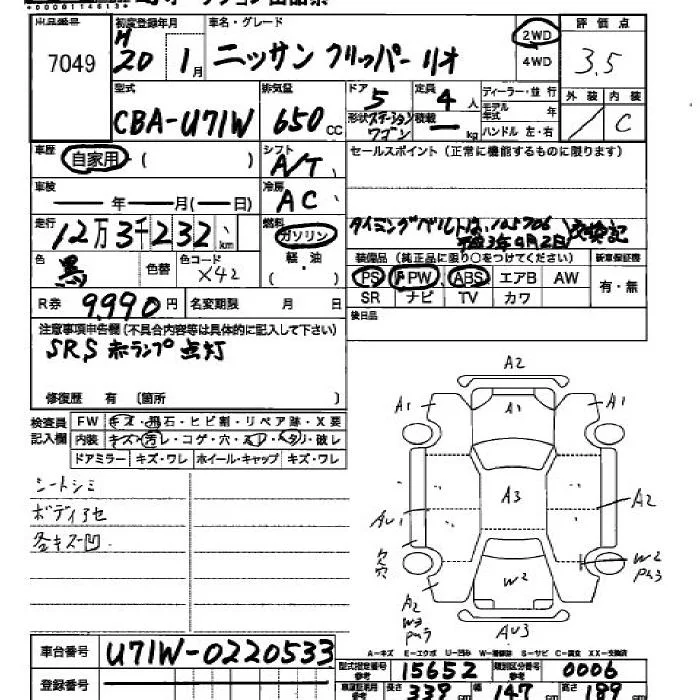 *00001146​13*
出品番号 初度登録年月 車名・グレード 評価点
7049 H20 1月 ニッサン フリッパーリオ 2WD 4WD 3.5
型式 排気量 ドア 5 定員 4人 ディーラー・並行 外装 内装
CBA-U71W 650cc 形状 ステーションワゴン 積載 ー kg モデル年式 年 ／ C
ハンドル 左・右
車歴 自家用 ( ) シフト A/T セールスポイント(正常に機能するものに限ります)
車検 ー年ー月(ー日) 冷房 AC
走行 12万3千232km 燃料 ガソリン 軽・油 タイミングベルトは、 交換記
色 黒 色替 色コード X42 装備品(純正品に限り○をつけてください) 新車保証書
PS PW ABS エアB AW 有・無
R券 9,990円 名変期限 月 日 SR ナビ TV カワ
注意事項申告欄(不具合内容等は具体的に記入して下さい) 後日品
SRS 赤ランプ点灯
修復歴 有 〔箇所 〕
検査員記入欄 FW キズ・飛石・ヒビ割・リペア跡・X要
内装 キズ・汚レ・コゲ・穴・スレ・ヘタリ・破レ
ドアミラー キズ・ワレ ホイール・キャップ キズ・ワレ
シートシミ
ボディアセ
各キズ凹
A2
A1 A1 A1
A3 A2
AU1
W2 W2
A2
AU3
A-キズ E-エクボ U-凹み W-補修跡 S-サビ C-腐食 XX-交換済
車台番号 U71W-0220533 型式指定番号 参考 15652 類別区分番号 参考 0006
登録番号 長さ 339cm 幅 147cm 高さ 189cm